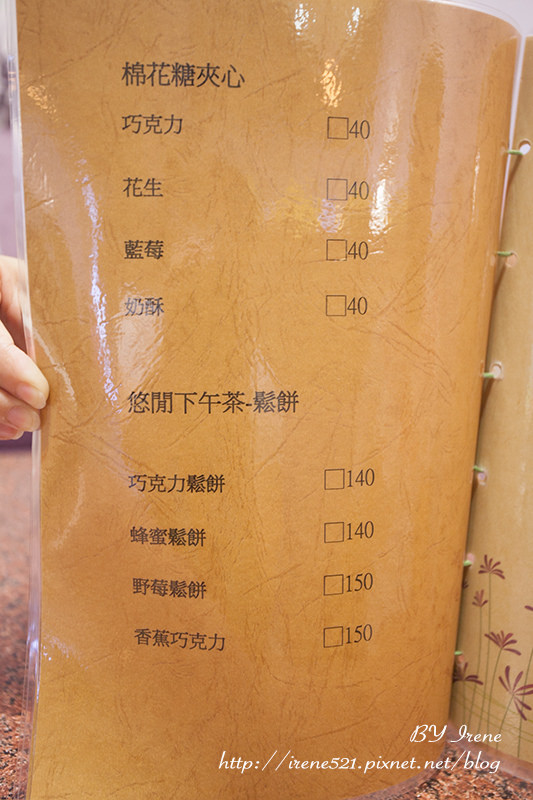 棉花糖夾心
巧克力 □40
花生 □40
藍莓 □40
奶酥 □40
悠閒下午茶-鬆餅
巧克力鬆餅 □140
蜂蜜鬆餅 □140
野莓鬆餅 □150
香蕉巧克力 □150
BY Irene
http://irene521.pixnet.net/blog